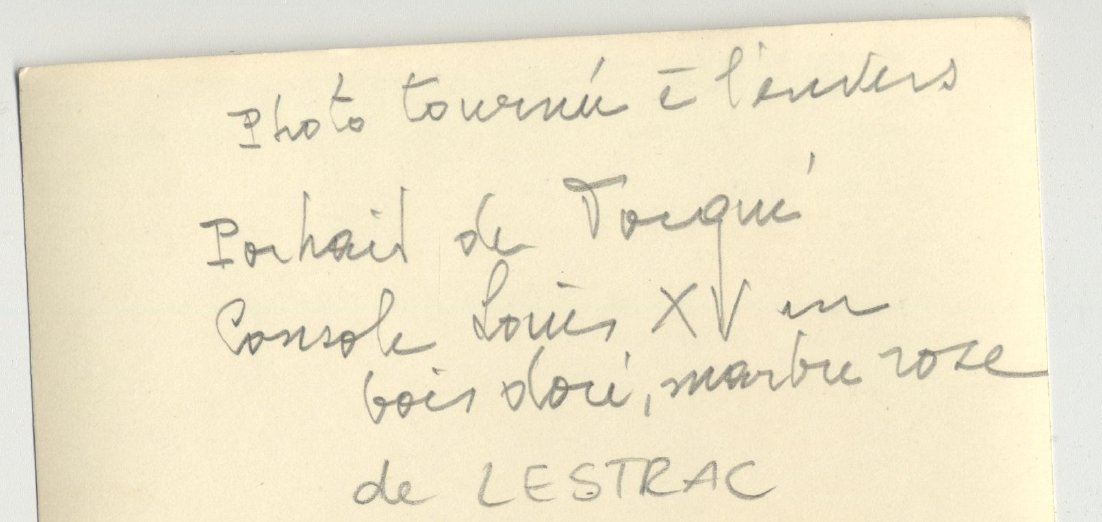 Photo tournée à l'envers
Portrait de Tocqué
Console Louis XV en
bois doré, marbre rose
de LESTRAC